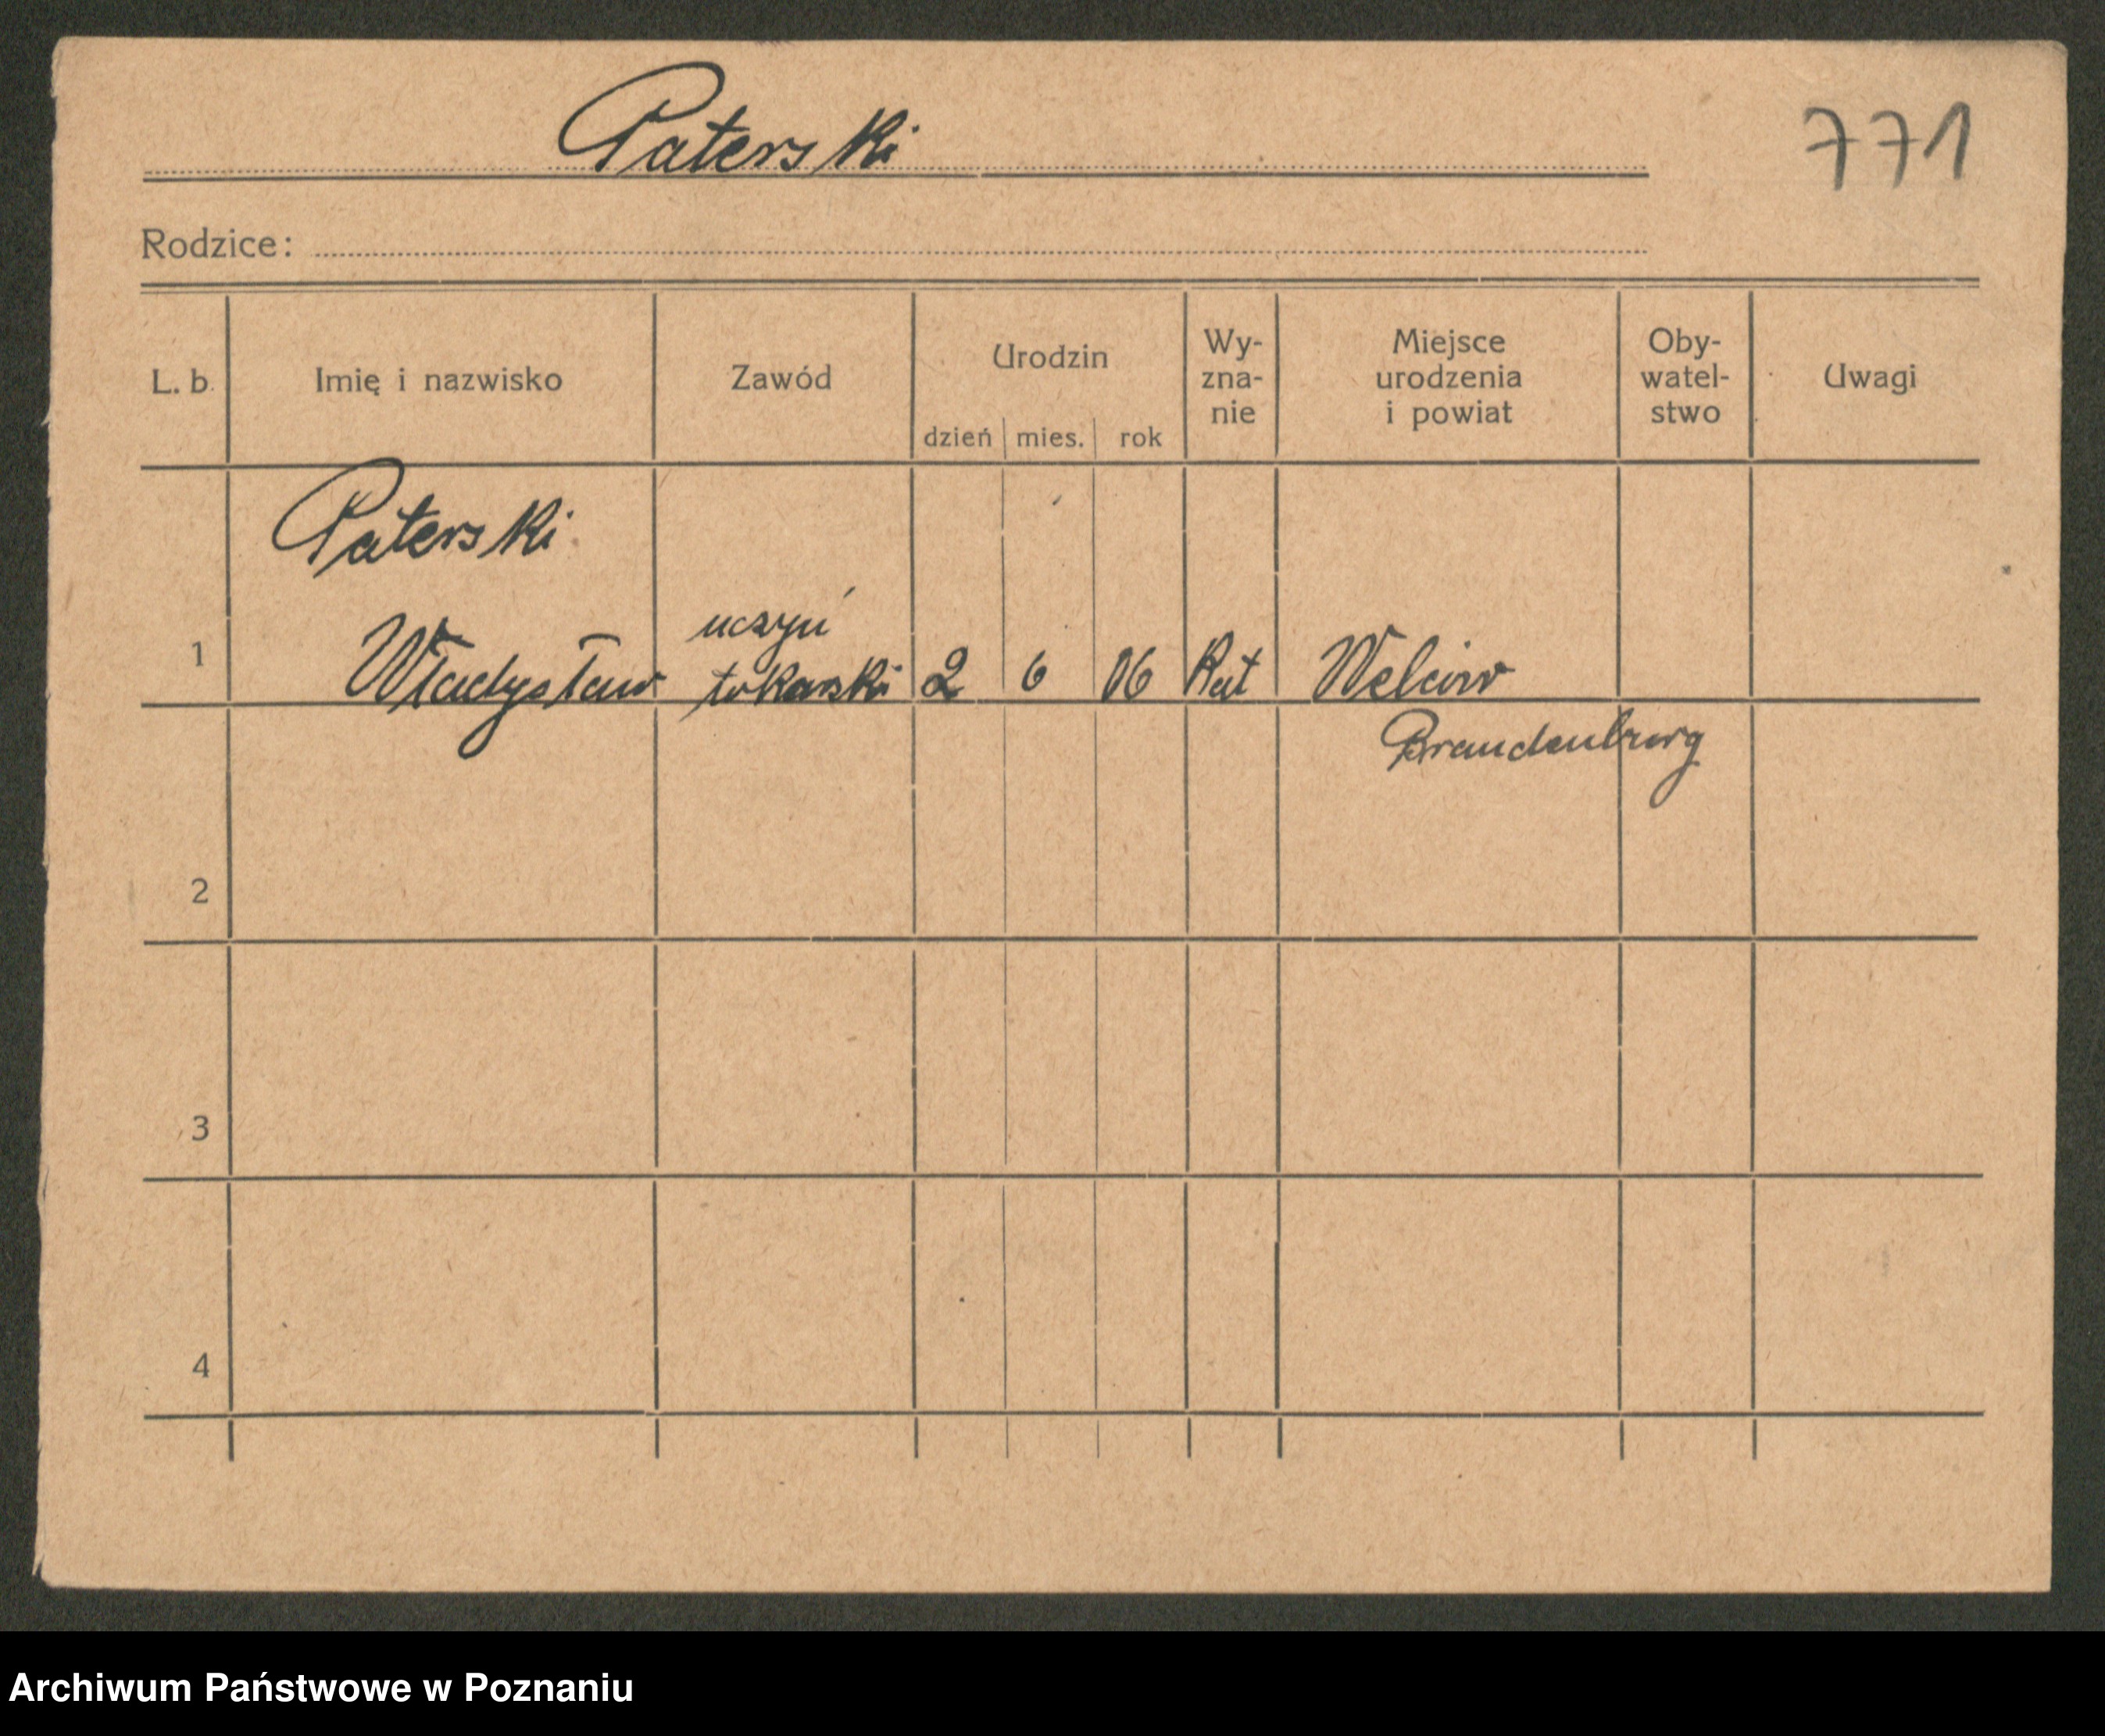 Paterski
771
Rodzice:
L. b. Imię i nazwisko Zawód Urodzin dzień mies. rok Wy- zna- nie Miejsce urodzenia i powiat Oby- watel- stwo Uwagi
Paterski
uczeń
1 Władysław tokarski 2 6 06 Kat
Brandenburg
2
3
4
Archiwum Państwowe w Poznaniu